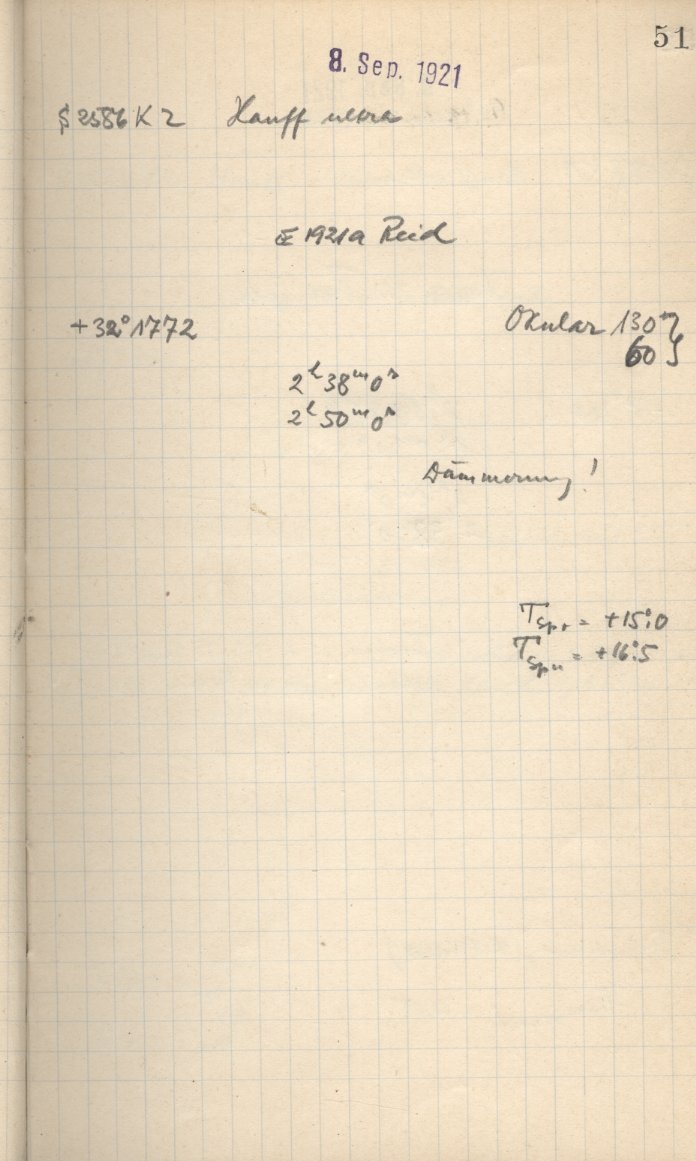 51
8. Sep. 1921
S 2586 K 2 Hauff ultra
1921a Reid
+32° 1772 Okular 130
60
2ʰ 38ᵐ 0ˢ
2ʰ 50ᵐ 0ˢ
Dämmerung!
T = +15°.0
T = +16°.5